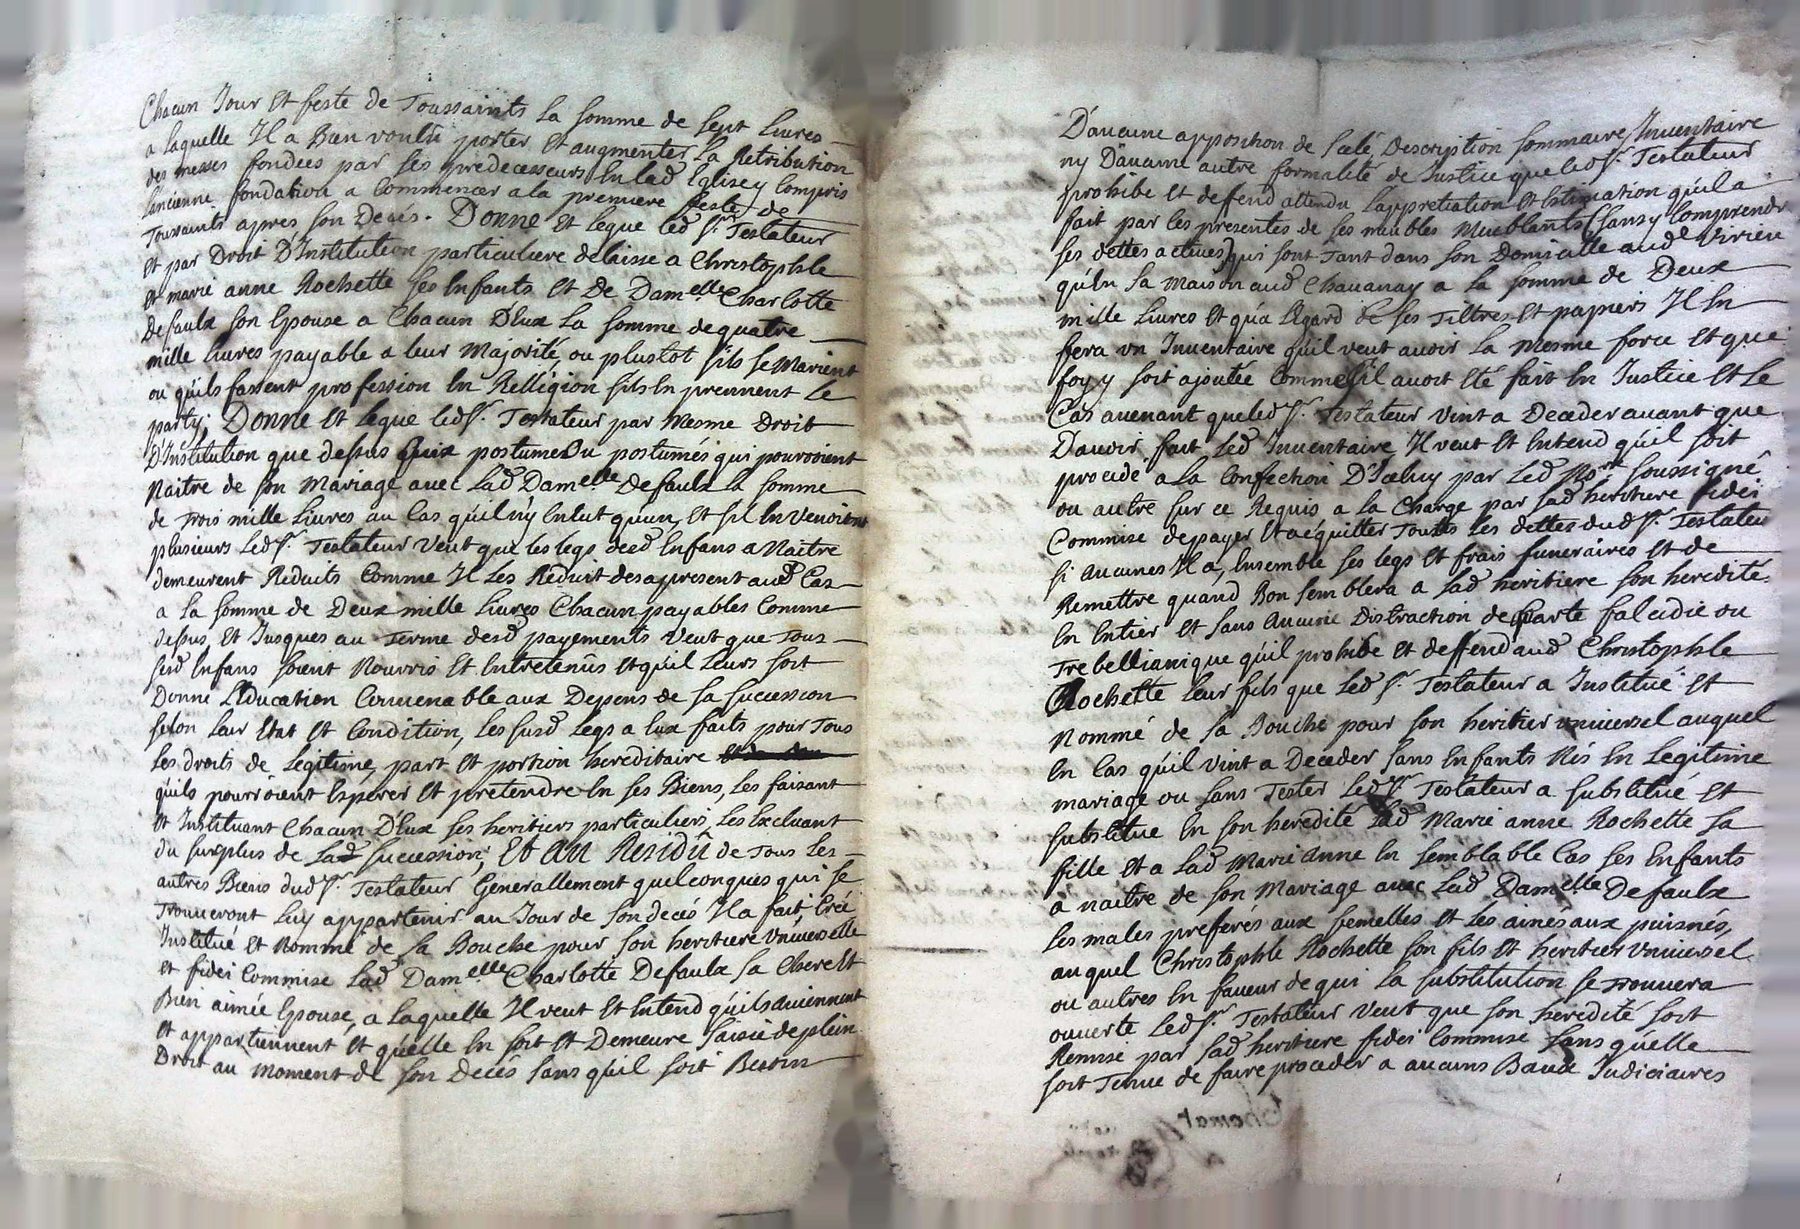 Chacun Jour Et feste de Toussaints La somme de sept Livres
a Laquelle Il a Bien voulu porter Et augmenter La Retribution
des messes fondées par ses predecesseurs En lad Eglise y Compris
Lancienne fondation a Commencer a la premiere feste de
Toussaints apres son Decés. Donne Et Legue led Sr. Testateur
Et par Droit D'Institution particuliere delaisse a Christophle
Et marie anne Rochette ses Enfants Et de Damelle Charlotte
Defaulx son Epouse a Chacun D'Eux La somme de quatre
mille Livres payable a leur Majorité ou plustot s'ils se Marient
ou qu'ils fassent profession En Relligion s'ils En prennent Le
party, Donne Et Legue led Sr. Testateur par Mesme Droit
D'Institution que dessus aux postume Ou postumés qui pourroient
Naitre de son Mariage avec Lad Damelle Defaulx La somme
de Trois mille Livres au Cas qu'il n'y En Eut qu'un, Et s'il En Venoient
plusieurs Led Sr. Testateur Veut que les legs desd Enfans a Naitre
demeurent Reduits Comme Il Les Reduit des apresent aud Cas
a La somme de Deux mille Livres Chacun payables Comme
dessus, Et Jusques au Terme desd payements Veut que Tous
sesd Enfans soient Nourris Et Entretenus Et qu'il Leurs soit
Donne L'Education Convenable aux Depens de sa succession
selon Leur Etat Et Condition, Les susd Legs a Eux faits pour Tous
Les droits de Legitime, part Et portion hereditaire
qu'ils pourroient Esperer Et pretendre En ses Biens, Les faisant
Et Instituant Chacun D'Eux ses heritiers particuliers, Les Excluant
du surplus de Lad succession; Et Au Residû de Tous Les
autres Biens dud Sr. Testateur Generallement quelconques qui se
Trouveront Luy appartenir au Jour de son decés Il a fait, Créé
Institué Et Nommé de sa Bouche pour son heritiere Universelle
Et fidei Commise Lad Damelle Charlotte Defaulx sa Chere Et
Bien aimée Epouse, a Laquelle Il veut Et Entend qu'ils aviennent
Et appartiennent Et qu'elle En soit Et Demeure saisie de plein
Droit au Moment de son Decés sans qu'il soit Besoin
D'aucune apposition de scelé Description sommaire, Inventaire
ny D'aucune autre formalité de Justice que led Sr. Testateur
prohibe Et deffend attendu L'appretiation Et Estimation qu'il a
fait par les presentes de ses meubles Meublants (sans y Comprendre
ses dettes actives) qui sont Tant dans son Domicille aud Virieu
qu'En sa Maison aud Chavanay a La somme de Deux
mille Livres Et qu'a L'Egard de ses Tiltres Et papiers Il En
fera un Inventaire qu'il veut avoir La Mesme force Et que
foy y soit ajoutée Comme s'il avoit Eté fait En Justice Et Le
Cas avenant que led Sr. Testateur vint a Deceder avant que
D'avoir fait Led Inventaire Il veut Et Entend qu'il soit
procedé a la Confection D'Iceluy par Led Nore soussigné
ou autre sur ce Requis a La Charge par sad heritiere fidei
Commise de payer Et acquitter Toutes les dettes dud Sr. Testateur
si aucunes Il a, Ensemble ses legs Et frais funeraires Et de
Remettre quand Bon semblera a Lad heritiere son heredité
En Entier Et sans Aucune Distraction de Quarte falcidie ou
Trebellianique qu'il prohibe Et deffend aud Christophle
Rochette Leur fils que Led Sr. Testateur a Institué Et
Nommé de sa Bouche pour son heritier universel auquel
En Cas qu'il vint a Deceder sans Enfants Nés En Legitime
mariage ou sans Tester Led Sr. Testateur a substitué Et
substitue En son heredité Lad Marie anne Rochette sa
fille Et a Lad Marie Anne En semblable Cas ses Enfants
a naitre de son Mariage avec Lad Damelle Defaulx
Les males preferés aux femelles Et Les ainés aux puisnés,
auquel Christophle Rochette son fils Et heritier Universel
ou autres En faveur de qui La substitution se Trouvera
ouverte Led Sr. Testateur Veut que son heredité soit
Remise par sad heritiere fidei Commise sans qu'elle
soit Tenue de faire proceder a aucuns Baux Judiciaires